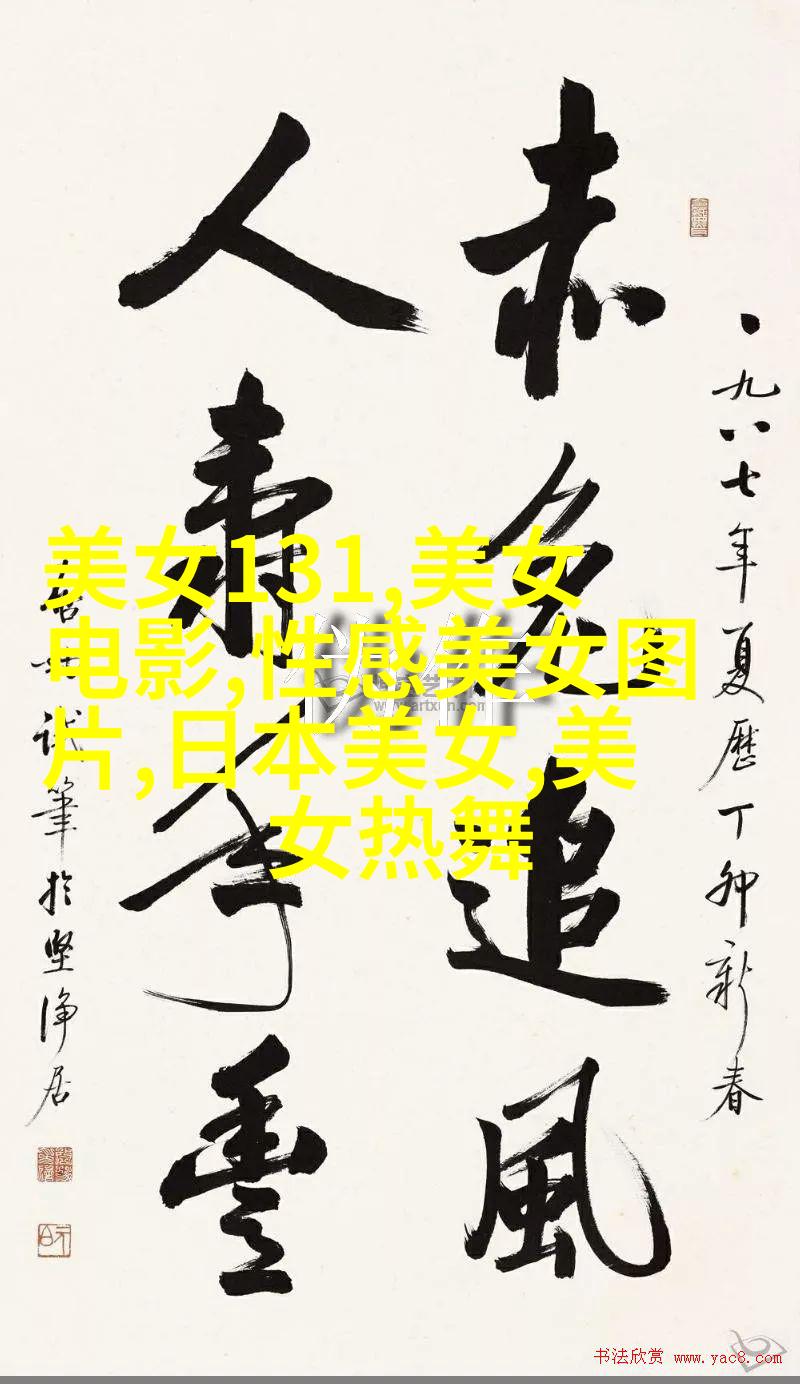 一九八七年夏历丁卯新春
赤兔追風
人壽年豊
启功试筆於坚浄居
美女131,美女
电影,性感美女图
片,日本美女,美
女热舞
www.artxun.com
书法欣赏 www.yac8.com